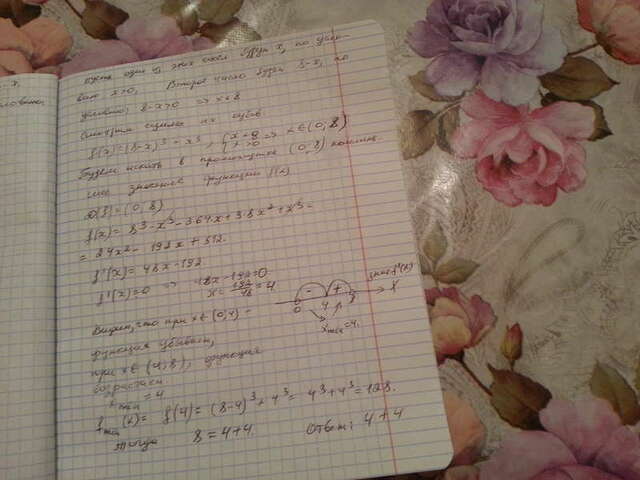 Пусть одно из этих чисел будет x, по усло-
вию x>0. Второе число будет 8-x, по
условию 8-x>0 => x<8
Составим сумму их кубов
f(x)=(8-x)³ + x³, => x∈(0,8)
Будем искать в промежутке (0,8) наимень-
шее значение функции f(x)
D(f)=(0,8)
f(x)= 8³-x³-3·64x+3·8x²+x³=
= 24x²- 192x + 512.
f'(x)= 48x-192.
f'(x)=0 => 48x-192=0
x=192/48=4
- + знак f'(x)
0 4 8 x
xmin=4.
Видим, что при x∈(0,4) -
функция убывает,
при x∈(4,8), функция
возрастает
xmin=4
fmin(x)= f(4)= (8-4)³+4³= 4³+4³=128.
Тогда 8=4+4. Ответ: 4+4